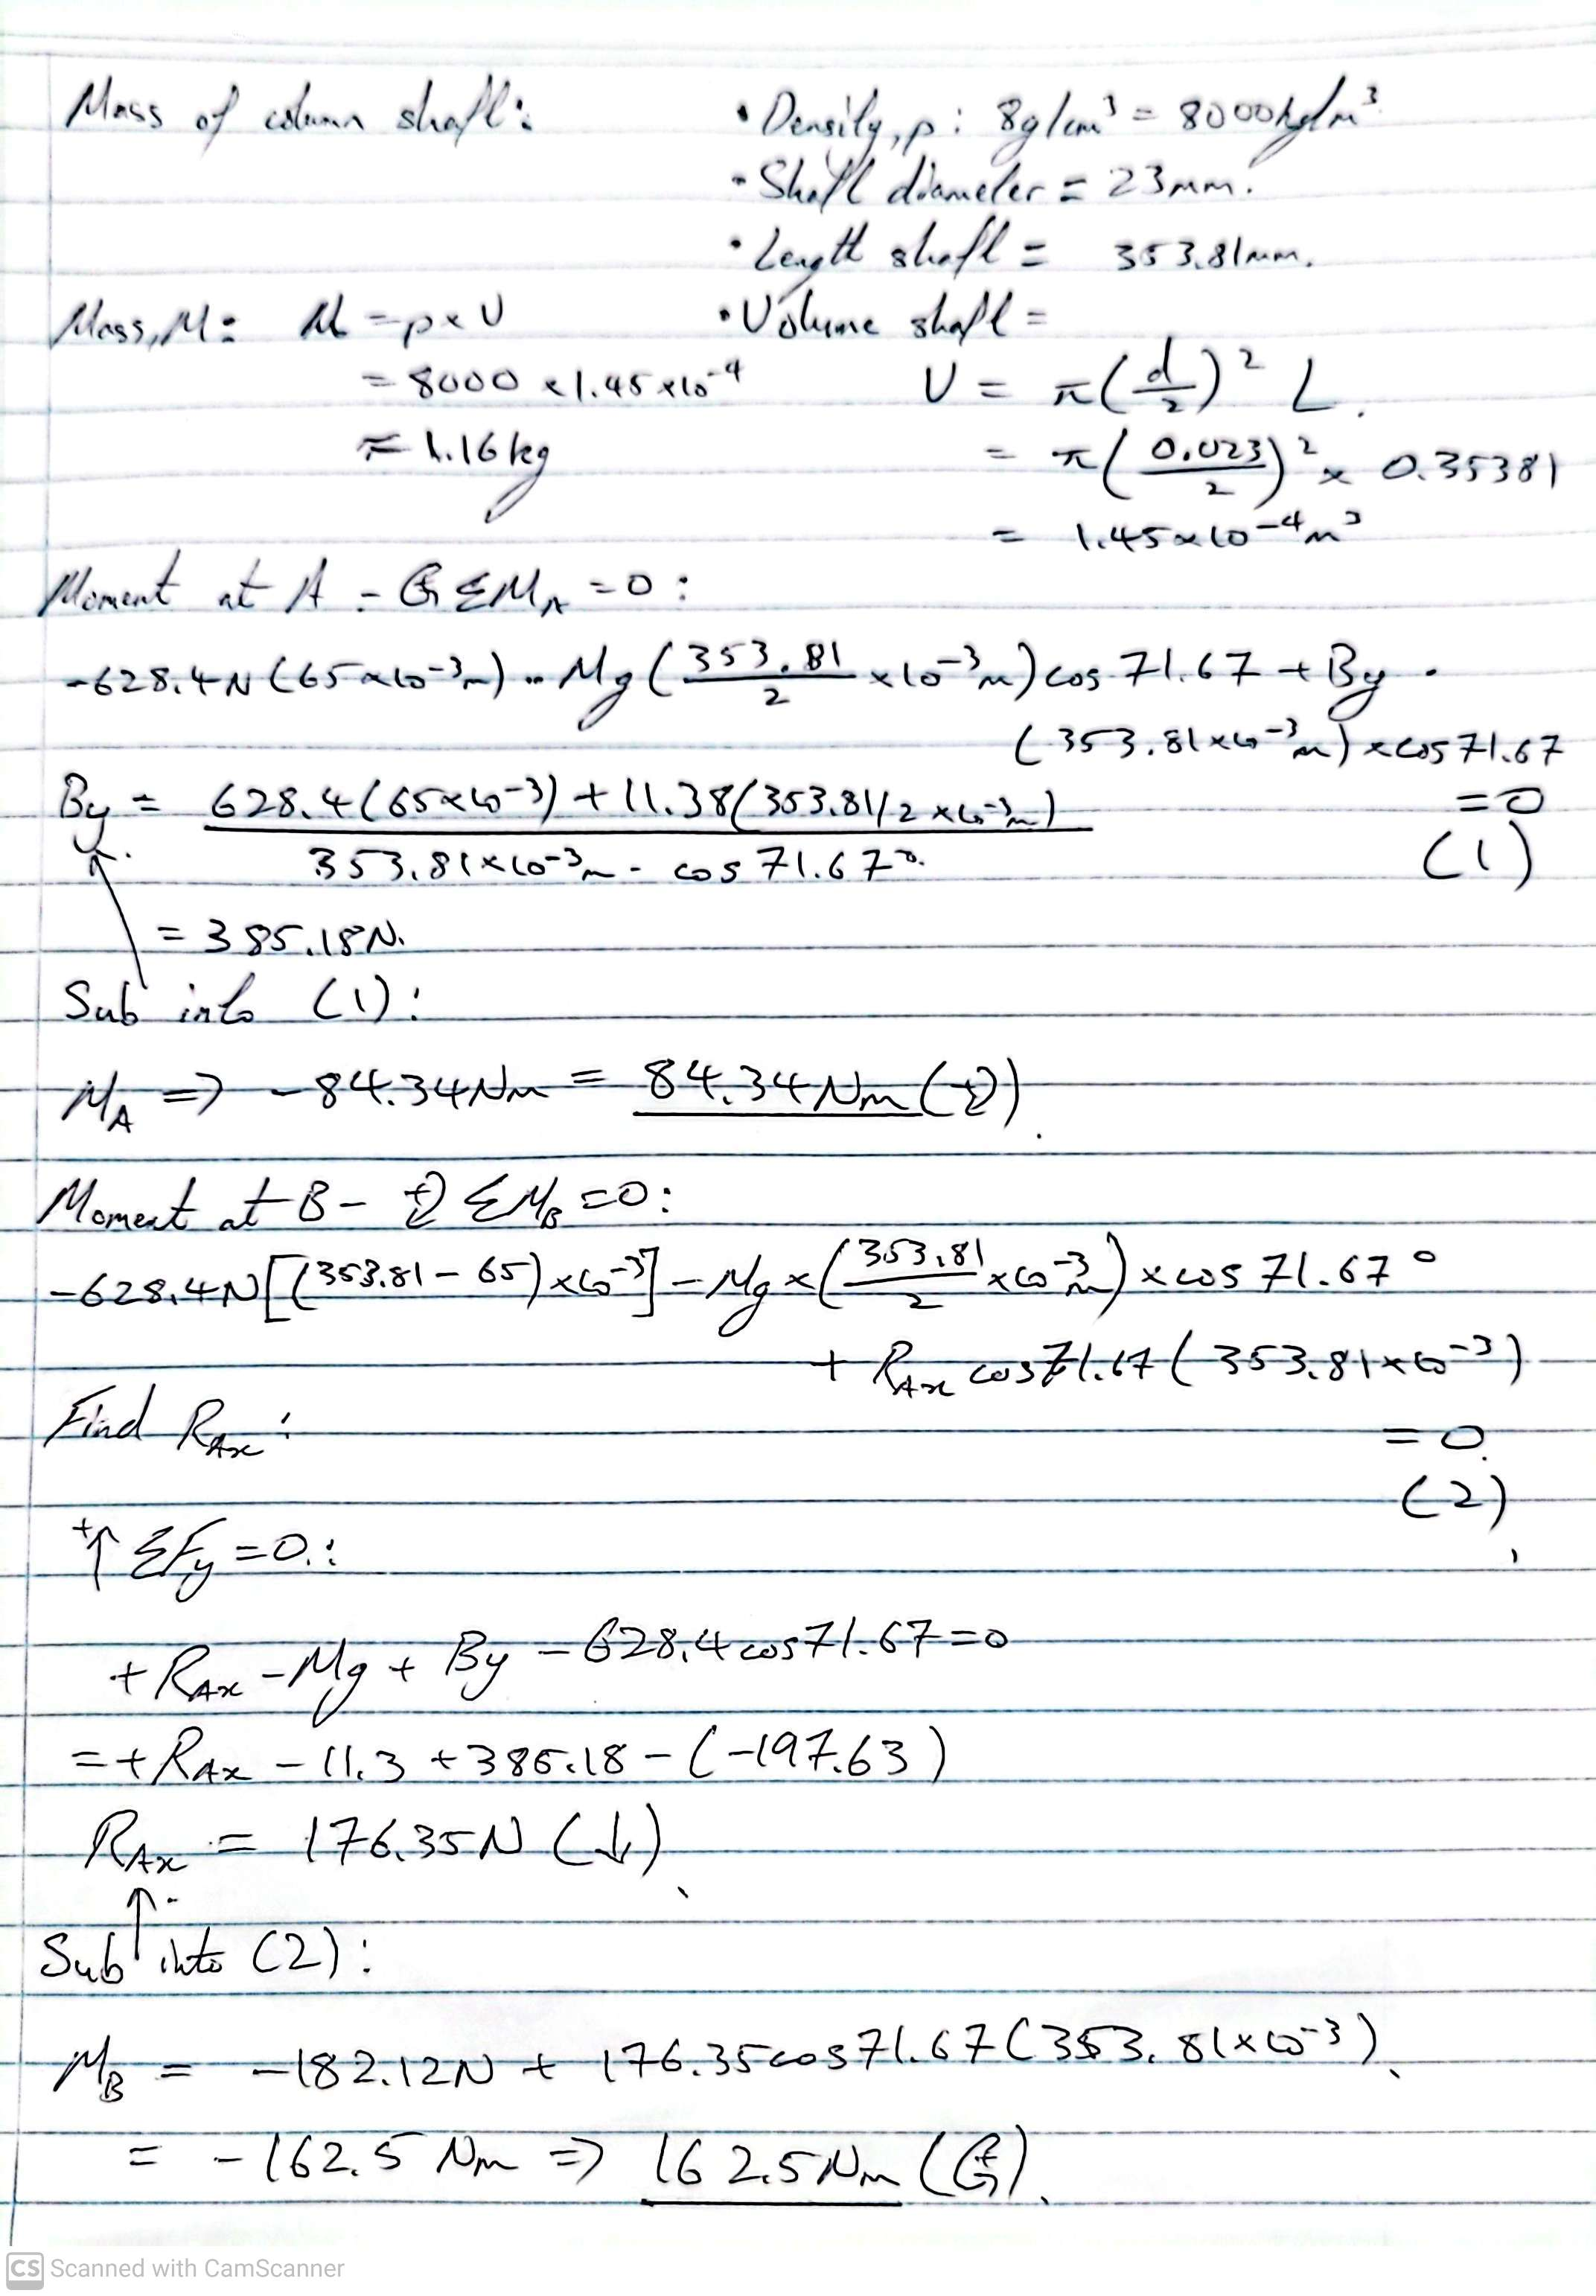 Mass of column shaft:
• Density, ρ: 8g/cm³ = 8000kg/m³
• Shaft diameter = 23mm.
• Length shaft = 353.81mm.
Mass, M: M = ρ×V
• Volume shaft =
= 8000 × 1.45×10⁻⁴
V = π(d/2)² L.
≈ 1.16kg
= π(0.023/2)² × 0.35381
= 1.45×10⁻⁴m³
Moment at A - ↺ ΣM_A = 0:
-628.4N (65×10⁻³m) - Mg (353.81/2 ×10⁻³m) cos 71.67 + By ·
(353.81×10⁻³m) × cos71.67
= 0
By = 628.4(65×10⁻³) + 11.38(353.81/2 ×10⁻³m) / 353.81×10⁻³m · cos 71.67°.
(1)
= 385.18N.
Sub into (1):
M_A ⇒ -84.34Nm = 84.34Nm (↻).
Moment at B - ↻ ΣM_B = 0:
-628.4N[(353.81 - 65)×10⁻³] - Mg × (353.81/2 ×10⁻³m) × cos 71.67°
+ R_Ax cos71.67 (353.81×10⁻³)
Find R_Ax:
= 0.
(2)
+↑ ΣFy = 0.:
+ R_Ax - Mg + By - 628.4cos71.67 = 0
= + R_Ax - 11.3 + 385.18 - (-197.63)
R_Ax = 176.35N (↓)
Sub into (2):
M_B = -182.12N + 176.35cos71.67 (353.81×10⁻³).
= -162.5 Nm ⇒ 162.5Nm (↺).
CS Scanned with CamScanner